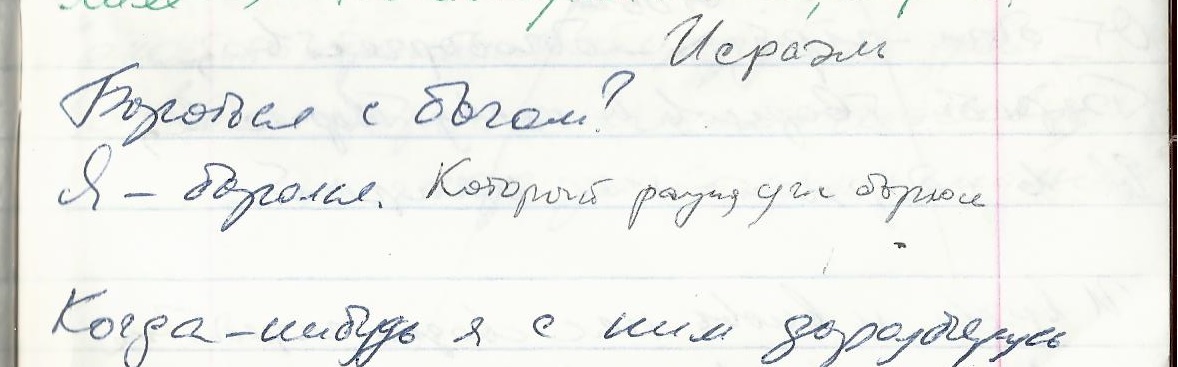 Исраэль
Бороться с богом?
Я – боролся. Который раунд уже борюсь
Когда-нибудь я с ним доразберусь